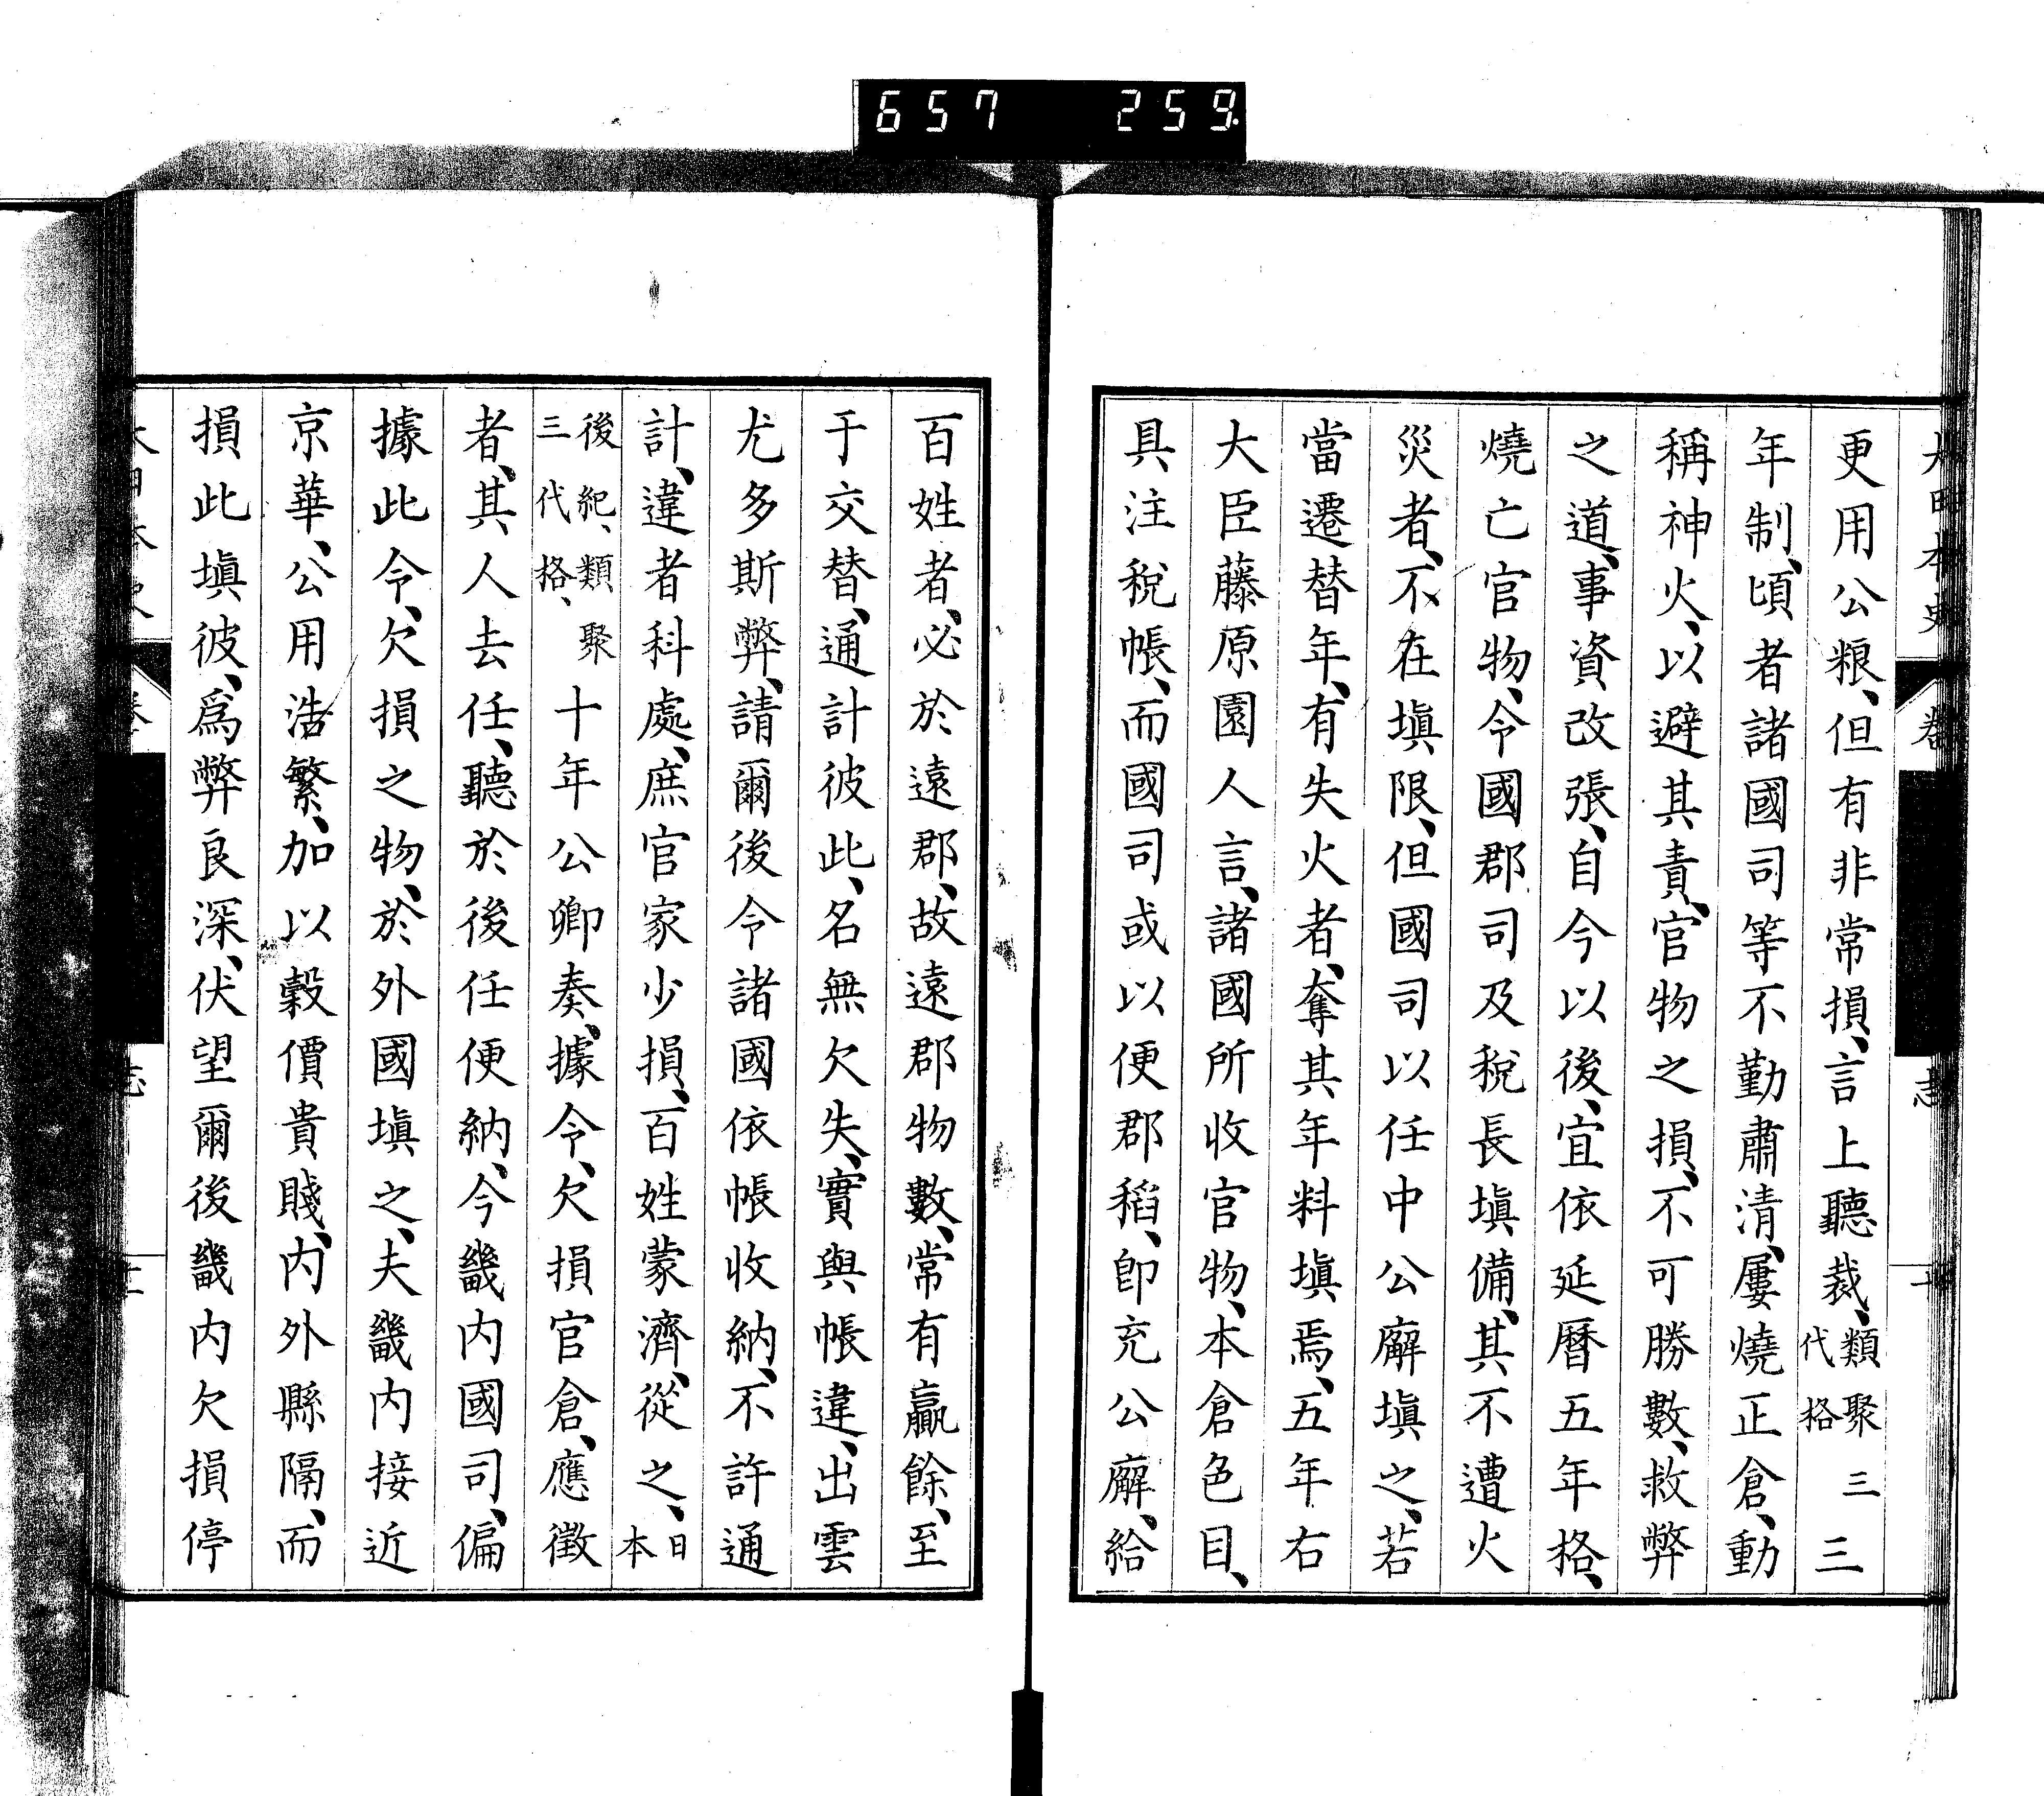 657 259
更用公粮、但有非常損、言上聽裁、類聚三代格三
年制、頃者諸國司等不勤肅清、屢燒正倉、動
稱神火、以避其責、官物之損、不可勝數、救弊
之道、事資改張、自今以後、宜依延曆五年格、
燒亡官物、令國郡司及稅長塡備、其不遭火
災者、不在塡限、但國司以任中公廨塡之、若
當遷替年、有失火者、奪其年料塡焉、五年右
大臣藤原園人言、諸國所收官物、本倉色目、
具注稅帳、而國司或以便郡稻、卽充公廨、給
百姓者、必於遠郡、故遠郡物數、常有贏餘、至
于交替、通計彼此、名無欠失、實與帳違、出雲
尤多斯弊、請爾後令諸國依帳收納、不許通
計、違者科處、庶官家少損、百姓蒙濟、從之、日本
後紀、類聚三代格、十年公卿奏、據令、欠損官倉、應徵
者、其人去任、聽於後任便納、今畿內國司、偏
據此令、欠損之物、於外國塡之、夫畿內接近
京華、公用浩繁、加以穀價貴賤、內外縣隔、而
損此塡彼、爲弊良深、伏望爾後畿內欠損停